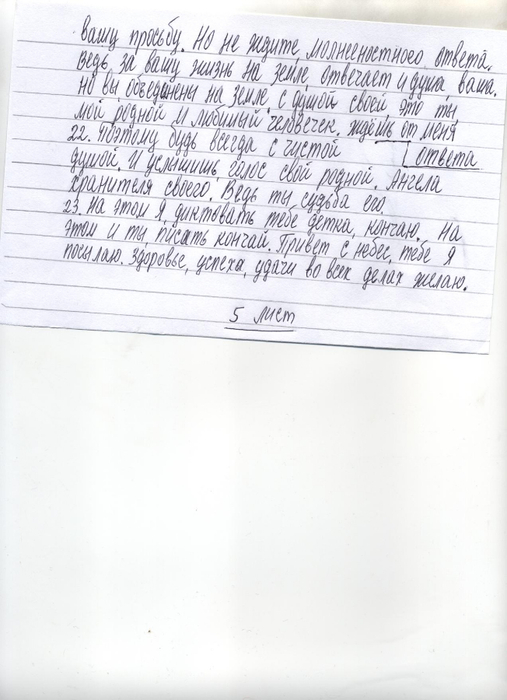 вашу просьбу. Но не ждите, молнееностного ответа.
ведь, за вашу жизнь на земле, отвечает и душа ваша.
но вы объединены на земле, с душой своей, это ты,
мой родной и любимый человечек. ждёшь от меня
22. Поэтому будь всегда с чистой [ответа
душой. И услышишь, голос свой родной. Ангела
хранителя своего. Ведь ты, судьба его.
23. на этом я, диктовать тебе детка, кончаю. на
этом и ты, писать кончай. Привет с небес, тебе я
посылаю. здоровье, успеха, удачи во всех делах желаю.
5 лист